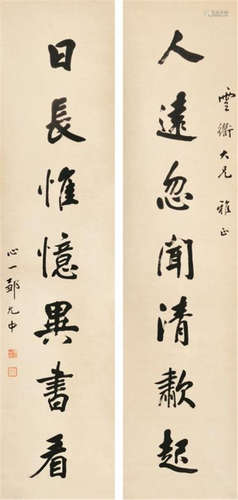 雲衢大兄 雅正
人遠忽聞清歗起
日長惟憶異書看
心一鄒允中